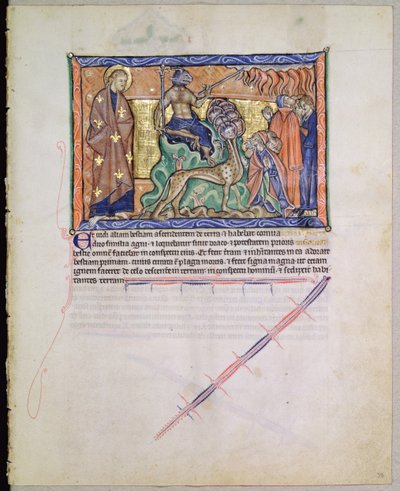 Et vidi aliam bestiam ascendentem de terra ⁊ habebat cornua
duo similia agni ⁊ loquebatur sicut draco ⁊ potestatem prioris
bestie omnem faciebat in conspectu eius. Et fecit terram ⁊ inhabitantes in ea adorare
bestiam primam cuius curata est plaga mortis ⁊ fecit signa magna ut etiam
ignem faceret de celo descendere in terram in conspectu hominum ⁊ seduxit habi
tantes terram